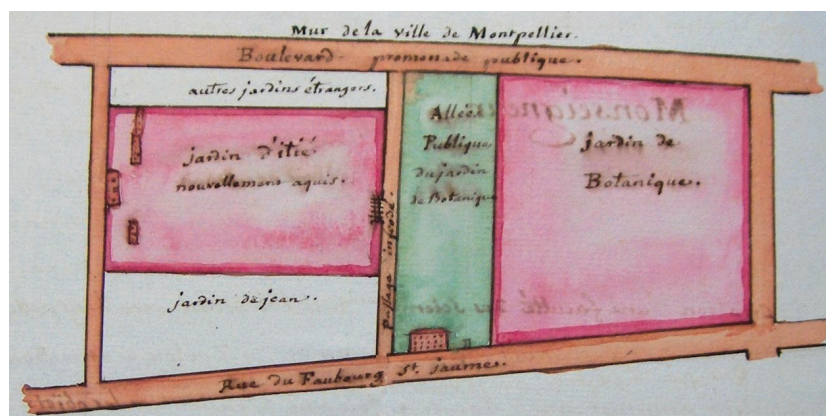 Mur de la ville de Montpellier.
Boulevard promenade publique.
autres jardins étrangers.
jardin d'itié
nouvellement aquis.
jardin de jean.
passage inféodé.
Allées
Publiques
du jardin
de Botanique
Jardin de
Botanique.
Rue du Faubourg St. jaumes.
Monseigneur